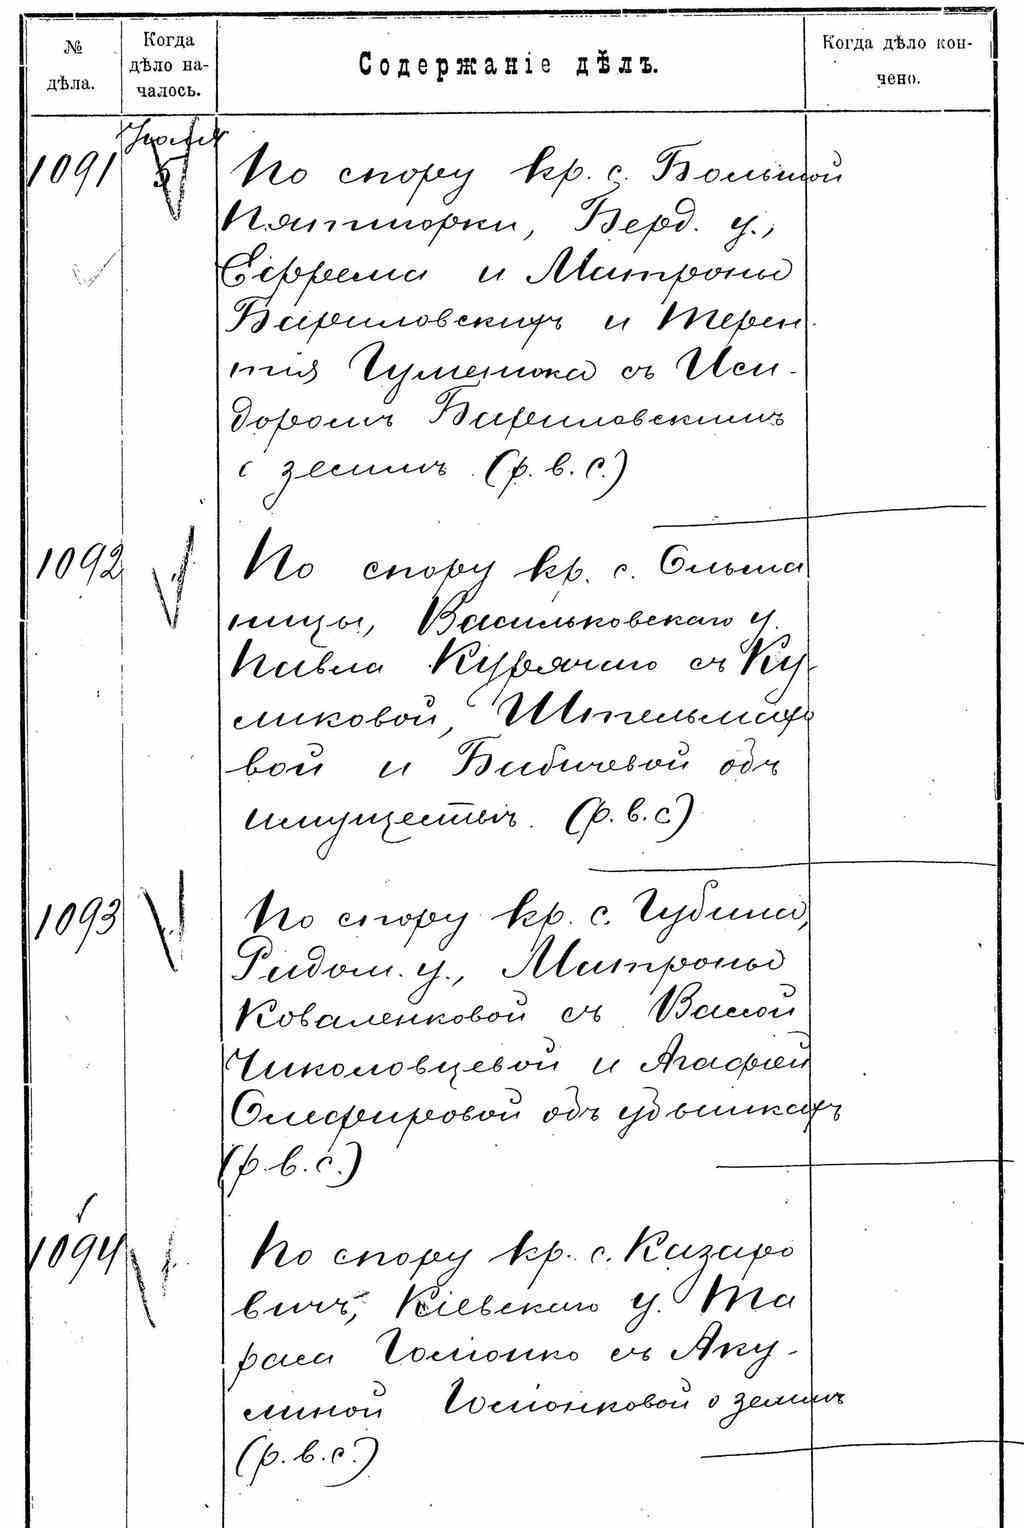 № дѣла.
Когда дѣло на-чалось.
Содержаніе дѣлъ.
Когда дѣло кон-чено.
Іюля
1091 5 По спору кр. с. Большой
Пятигорки, Берд. у.,
Ефрема и Матроны
Вариловскихъ и Терен-
тія Гуменюка съ Иси-
доромъ Вариловскимъ
о землѣ (р. в. с.)
1092 По спору кр. с. Ольша
ницы, Васильковскаго у.
Павла Курячаго съ Ку-
ликовой, Штельмахо
вой и Бибичевой объ
имуществѣ. (р. в. с)
1093 По спору кр. с. Губина,
Радом. у., Матроны
Коваленковой съ Вассой
Чиколовцевой и Агафіей
Олефировой объ убыткахъ
(р. в. с.)
1094 По спору кр. с. Казаро
вичъ, Кіевскаго у. Та
раса Гомонко съ Аку-
линой Гомонковой о землѣ
(р. в. с.)